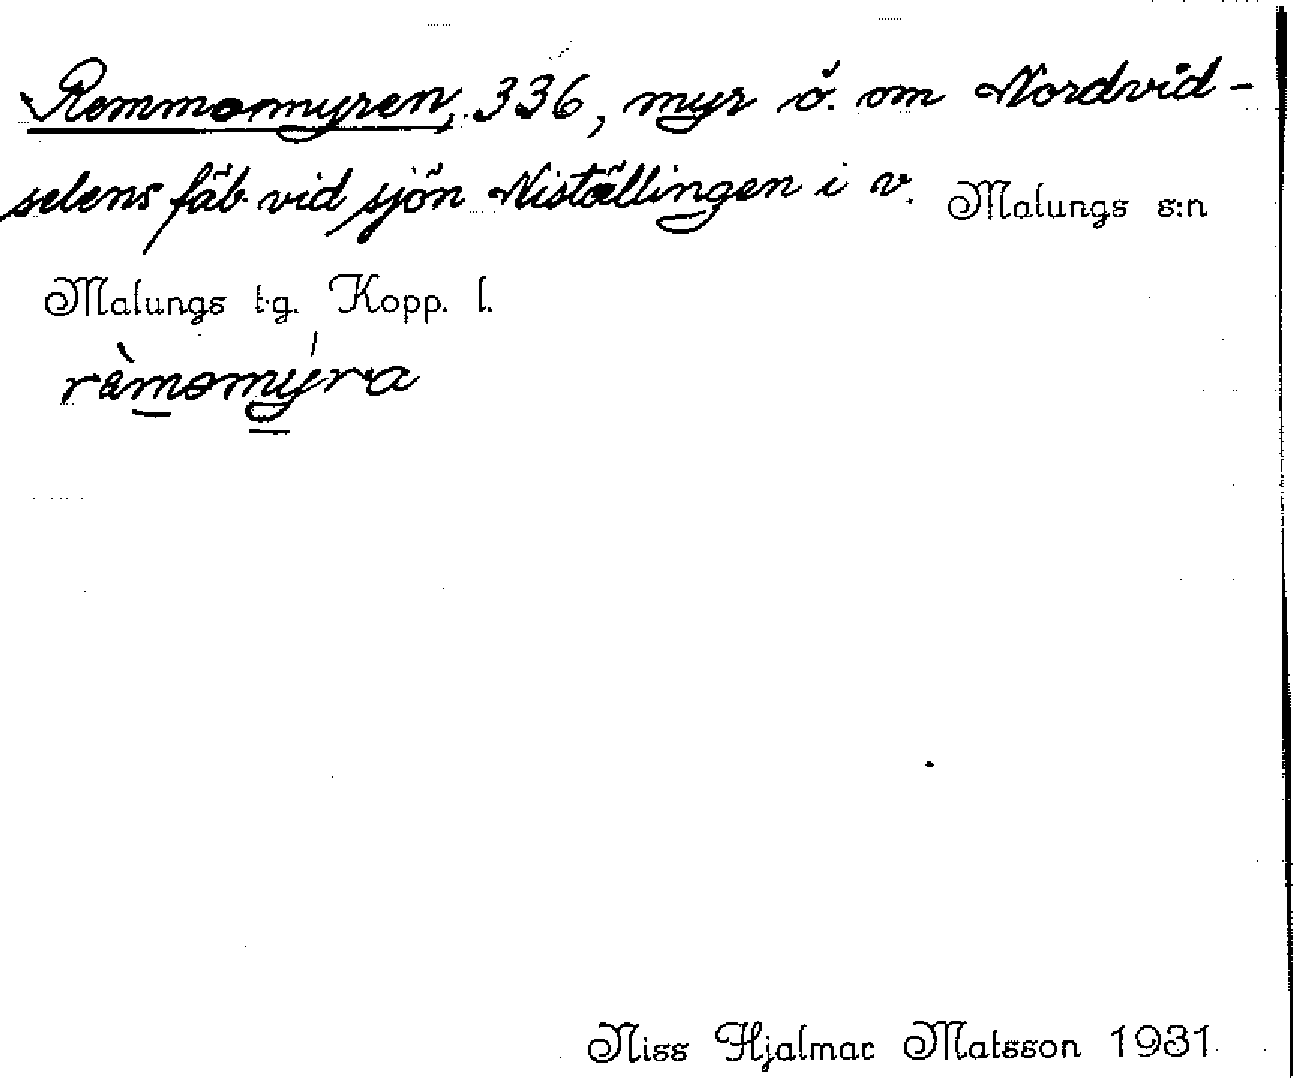 Remmomyren, 336, myr ö. om Nordvid-
selens fäb. vid sjön Niställingen i v. Malungs s:n
Malungs t.g. Kopp. l.
rèmomýra
Niss Hjalmar Matsson 1931